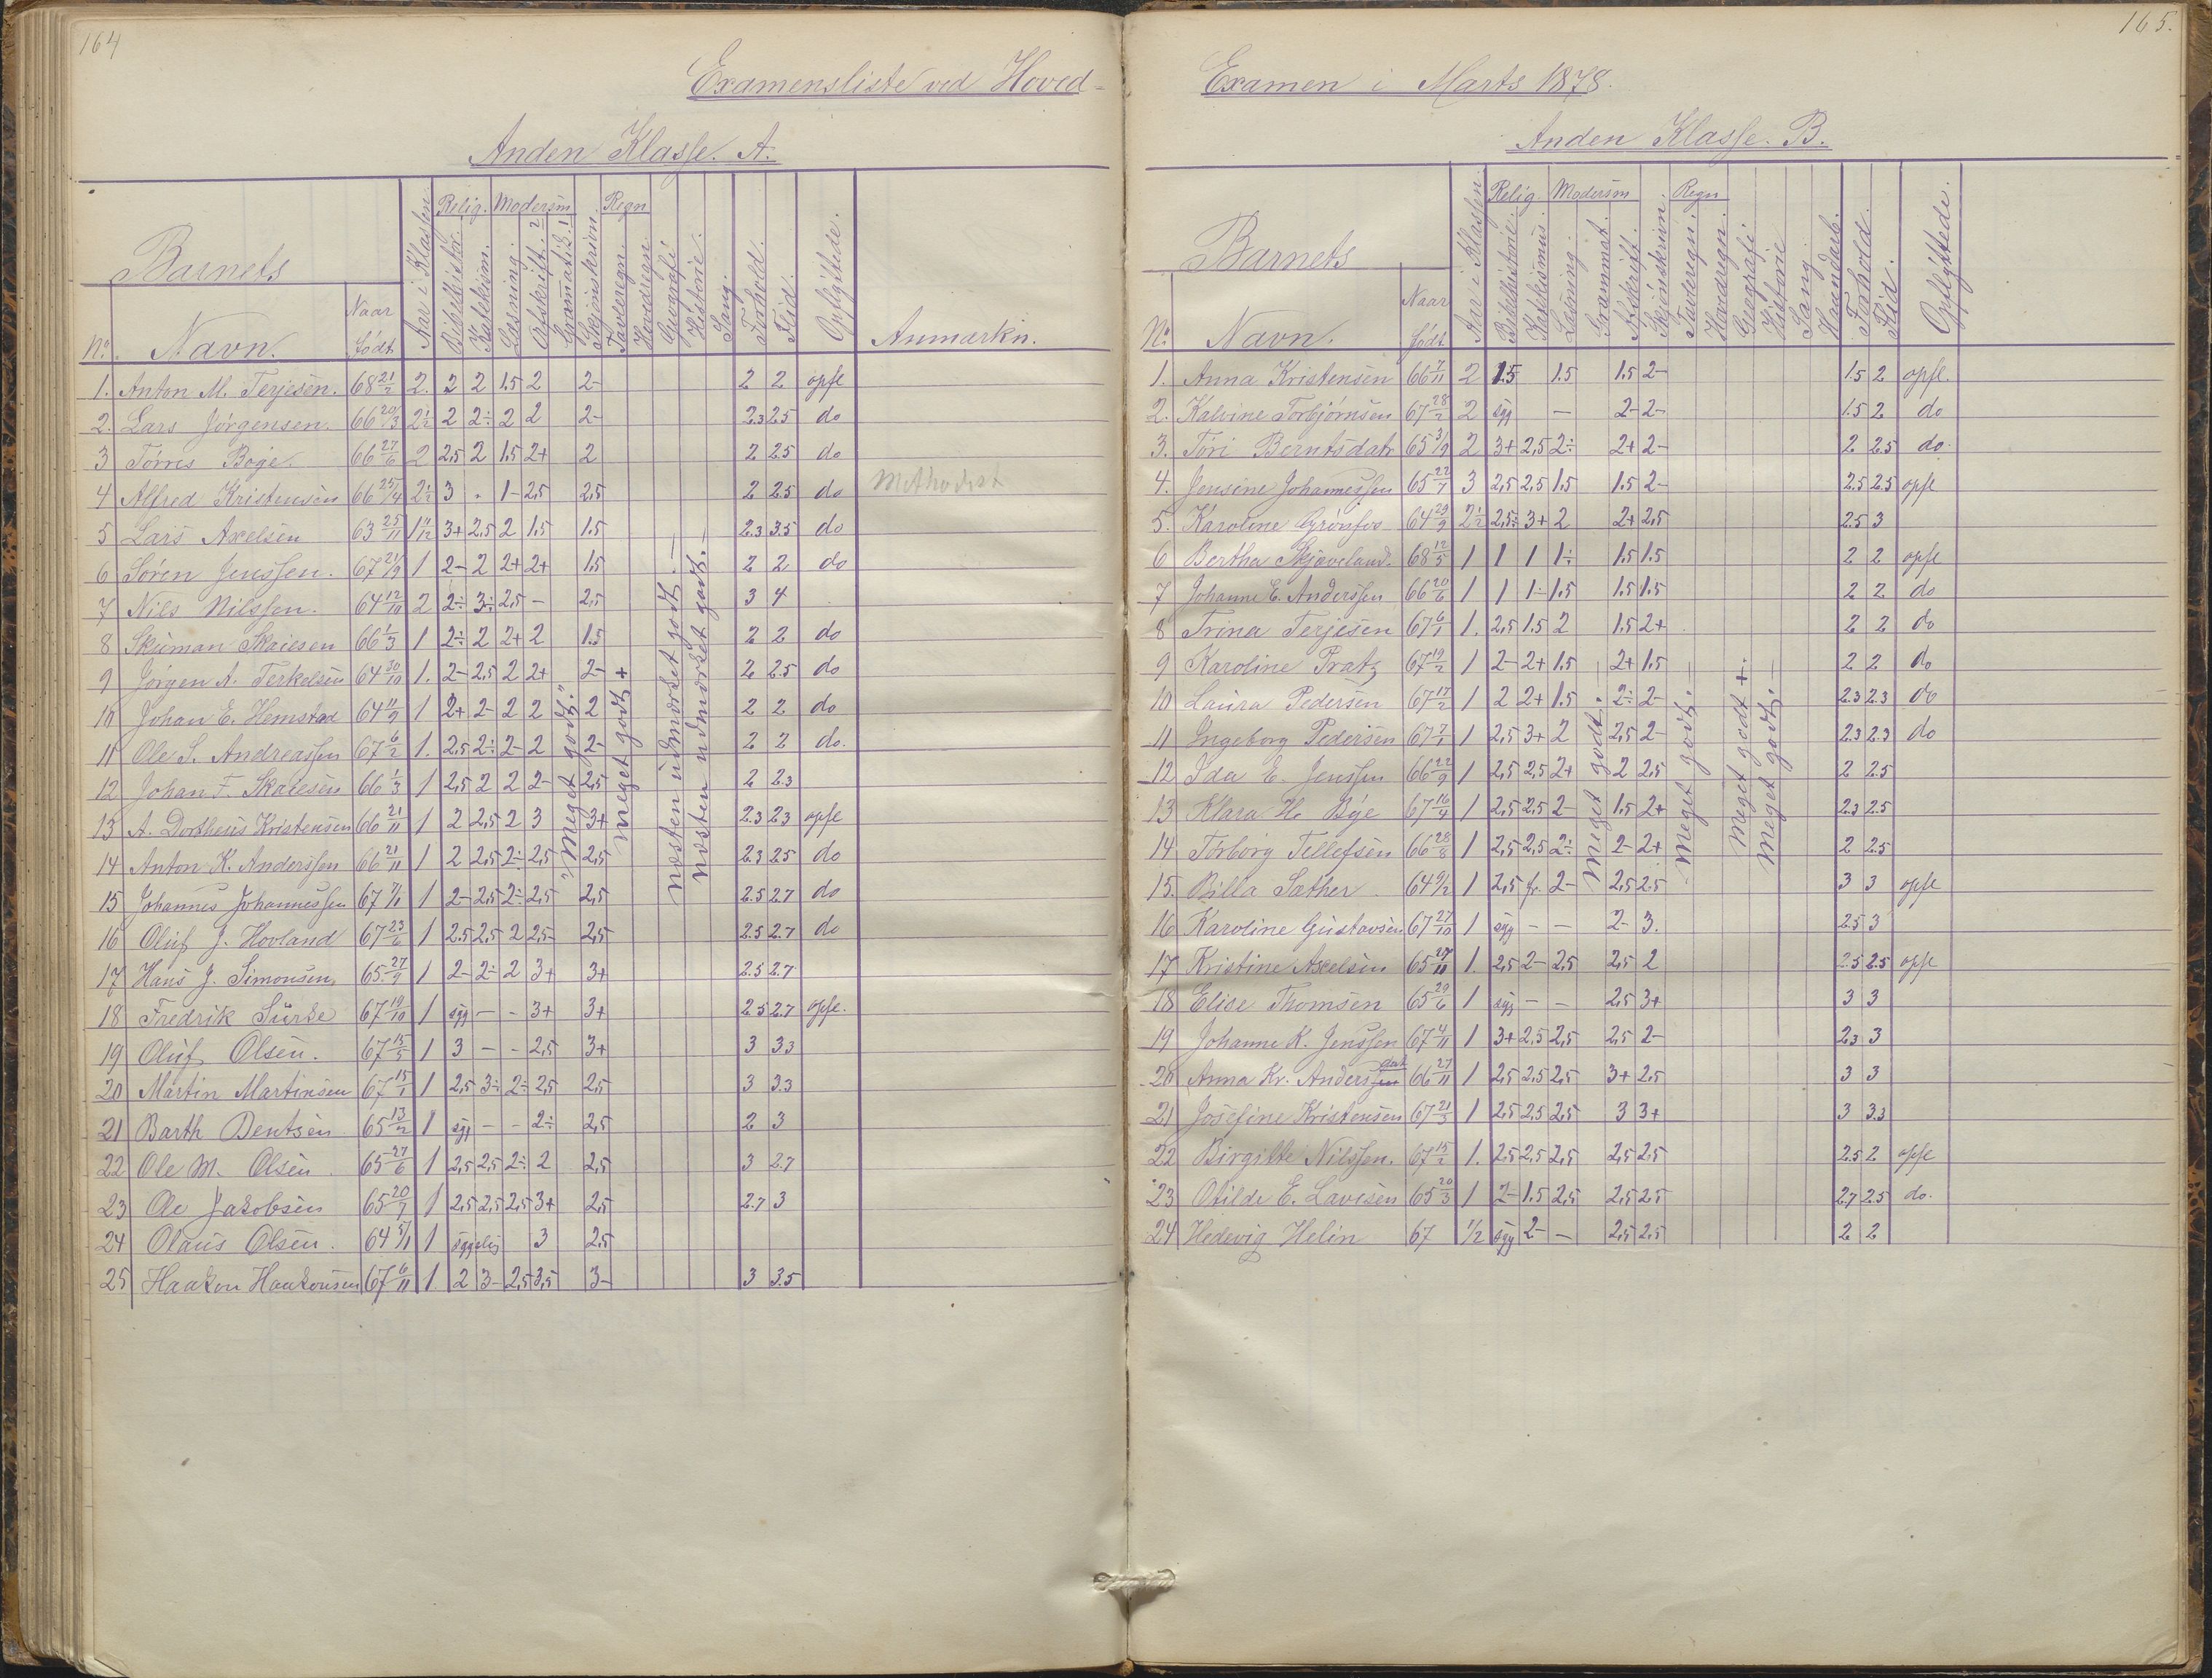 164
Examensliste ved Hoved-
Anden Klasse. A.
Barnets
No. Navn. Naar födt Aar i Klassen. Relig. Bibelhistor. Katekism. Modersm Læsning. Afskrift. 2 Grammatik. 1 Skjönskrivn. Regn Tavleregn. Hovedregn. Geografi Historie. Sang. Forhold. Flid. Opflyttede. Anmærkn.
1. Anton M. Terjesen. 68 21/2 2. 2 2 1.5 2 2- 2 2 opfl
2. Lars Jörgensen. 66 20/3 2 1/2 2 2÷ 2 2 2- 2.3 2.5 do
3 Törres Boge. 66 27/6 2 2,5 2 1.5 2+ 2 2 2.5 do
4 Alfred Kristensen 66 25/4 2 1/2 3 . 1- 2,5 2,5 2 2.5 do Methodist
5 Lars Axelsen 63 25/11 1 11/12 3+ 2.5 2 1.5 1.5 2.3 3.5 do
6 Sören Jenssen. 67 21/9 1 2- 2 2+ 2+ 1.5 2 2 do
7 Nils Nilssen. 64 12/10 2 2÷ 3÷ 2,5 - 2,5 3 4
8 Skuman Skaiesen 66 1/3 1 2÷ 2 2+ 2 1.5 2 2 do
9 Jörgen A. Terkelsen 64 30/10 1. 2- 2,5 2 2+ 2- 2 2.5 do
10 Johan E. Hemstad 64 11/9 1 2+ 2- 2 2 2 2 2 do
11 Ole S. Andreassen 67 6/2 1. 2,5 2÷ 2- 2 2- 2 2 do.
12 Johan F. Skaiesen 66 1/3 1 2,5 2 2 2- 2,5 2 2.3
13 A. Dortheus Kristensen 66 21/11 1 2 2,5 2 3 3+ 2.3 2.3 opfl
14 Anton K. Anderssen 66 21/11 1 2 2,5 2÷ 2,5 2,5 2.3 2.5 do
15 Johannes Johannessen 67 7/1 1 2- 2,5 2÷ 2,5 2,5 2.5 2.7 do
16 Oluf J. Hovland 67 23/6 1 2.5 2,5 2 2,5- 2,5 2.5 2.7 do
17 Hans J. Simonsen, 65 27/9 1 2- 2÷ 2 3+ 3+ 2.5 2.7
18 Fredrik Surke 67 19/10 1 syg - - 3+ 3+ 2.5 2.7 opfl.
19 Oluf Olsen. 67 15/5 1 3 - - 2,5 3+ 3 3.3
20 Martin Martinsen 67 15/1 1 2,5 3÷ 2÷ 2,5 2,5 3 3.3
21 Barth Bentsen 65 13/12 1 syg - - 2÷ 2,5 2 3
22 Ole M. Olsen. 65 27/6 1 2,5 2,5 2÷ 2 2,5 3 2.7
23 Ole Jakobsen 65 20/7 1 2,5 2,5 2,5 3+ 2,5 2.7 3
24 Olaus Olsen. 64 5/1 1 sygelig 3 2,5
25 Haakon Haakonsen 67 6/11 1. 2 3- 2,5 3,5 3- 3 3.5
"Meget godt."
meget godt +
næsten udmærket godt. -
næsten udmærket godt. -
165.
Examen i Marts 1878.
Anden Klasse. B.
Barnets
No. Navn. Naar födt. Aar i Klassen. Relig. Bibelhistorie. Katekismus. Modersm Læsning. Grammat. Afskrift. Skjönskrivn. Regn Tavleregn. Hovedregn. Geografi Historie Sang Haandarb. Forhold. Flid. Opflyttede.
1. Anna Kristensen 66 7/11 2 1.5 1.5 1.5 2- 1.5 2 opfl.
2. Kalvine Torbjörnsen 67 28/2 2 syg - 2- 2- 1.5 2 do
3. Töri Berntsdatr 65 3/9 2 3+ 2,5 2÷ 2+ 2- 2 2.5 do.
4. Jensine Johannessen 65 22/7 3 2,5 2.5 1.5 1.5 2- 2.5 2.5 opfl
5. Karoline Grönfos 64 29/9 2 1/2 2,5÷ 3+ 2 2+ 2,5 2.5 3
6 Bertha Skjæveland. 68 12/5 1 1 1 1÷ 1.5 1.5 2 2 opfl
7 Johanne E. Anderssen 66 20/6 1 1 1- 1.5 1.5 1.5 2 2 do
8 Trina Terjesen 67 6/1 1. 2,5 1.5 2 1.5 2+ 2 2 do
9 Karoline Pratz 67 19/2 1 2- 2+ 1.5 2+ 1.5 2 2 do
10 Laura Pedersen 67 17/2 1 2 2+ 1.5 2÷ 2- 2.3 2.3 do
11 Ingeborg Pedersen 67 7/1 1 2,5 3+ 2 2,5 2- 2.3 2.3 do
12 Ida E. Jenssen 66 22/9 1 2,5 2,5 2+ 2 2,5 2 2.5
13 Klara H. Bye 67 16/4 1 2,5 2,5 2- 1.5 2+ 2.3 2.5
14 Torborg Tellefsen 66 28/8 1 2,5 2,5 2÷ 2- 2+ 2 2.5
15. Billa Sæther 64 9/2 1 2,5 fr. 2- 2,5 2.5 3 3 opfl
16 Karoline Gustavsen 67 27/10 1 syg - - 2- 3. 2.5 3
17 Kristine Axelsen 65 27/11 1. 2,5 2- 2,5 2,5 2 2.5 2.5 opfl
18 Elise Thomsen 65 29/6 1 syg - - 2,5 3+ 3 3
19 Johanne K. Jenssen 67 4/11 1 3+ 2,5 2,5 2,5 2- 2.3 3
20 Anna Kr. Andersdatr 66 27/11 1 2,5 2,5 2,5 3+ 2,5 3 3
21 Josefine Kristensen 67 21/3 1 2,5 2,5 2,5 3 3+ 3 3.3
22 Birgitte Nilssen. 67 15/2 1. 2,5 2,5 2,5 2,5 2,5 2.5 2 opfl
23 Otilde E. Lavisen 65 20/3 1 2- 1.5 2,5 2,5 2,5 2.7 2.5 do.
24 Hedevig Helin 67 1/2 syg 2- - 2,5 2.5 2 2
meget godt.
meget godt. -
meget godt +.
meget godt. -